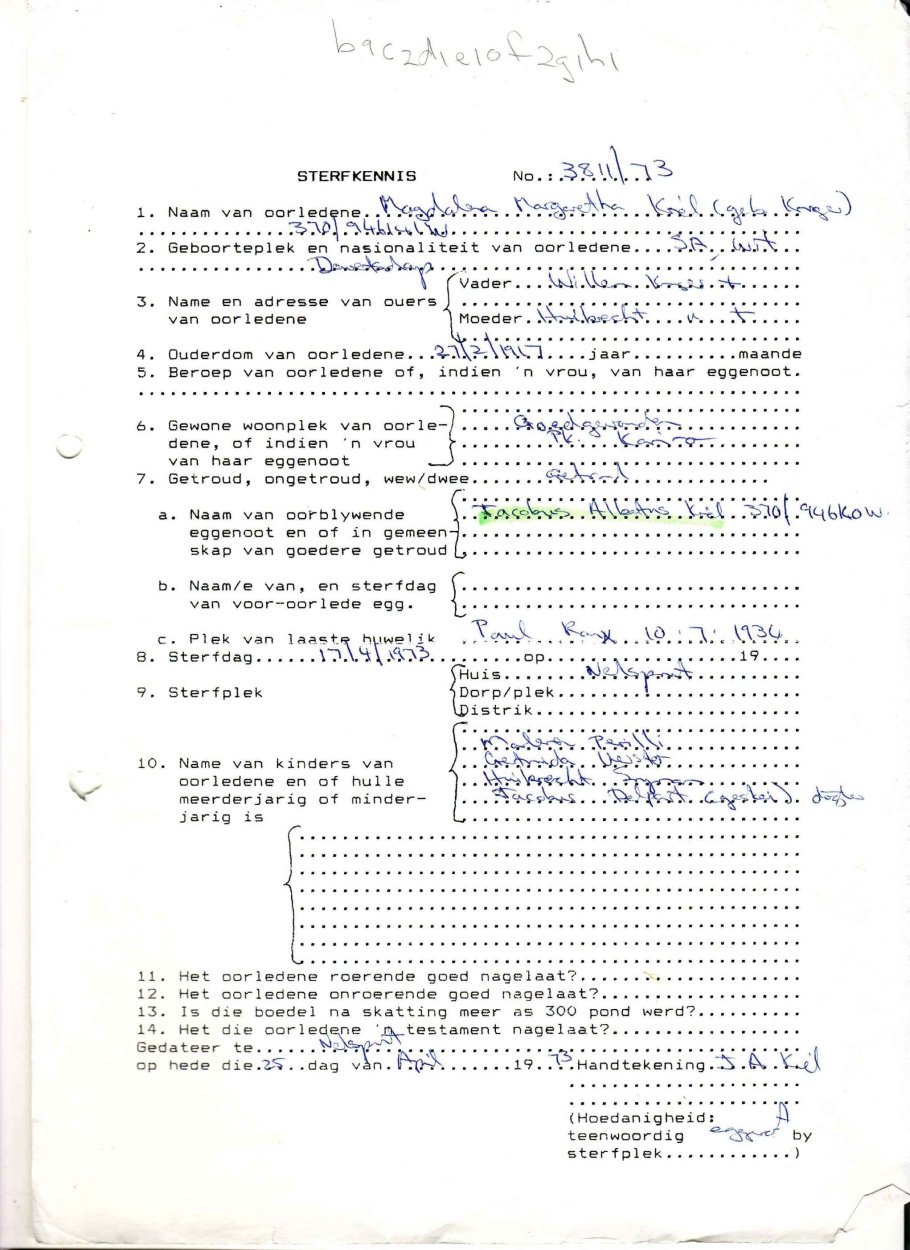 b9c2d1e1of2g1h1
STERFKENNIS No.: 3811/73
1. Naam van oorledene Magdalena Margaretha Kriël (geb Kruger)
2. Geboorteplek en nasionaliteit van oorledene S.A. wit
3. Name en adresse van ouers van oorledene
Vader Willem Kruger +
Moeder Huibrecht " +
4. Ouderdom van oorledene 27/2/1917 jaar maande
5. Beroep van oorledene of, indien 'n vrou, van haar eggenoot.
6. Gewone woonplek van oorle-
dene, of indien 'n vrou
van haar eggenoot
Goedgevonden
Pk. Karino
7. Getroud, ongetroud, wew/dwee getroud
a. Naam van oorblywende Jacobus Albertus Kriël 370/946KOW
eggenoot en of in gemeen-
skap van goedere getroud
b. Naam/e van, en sterfdag
van voor-oorlede egg.
c. Plek van laaste huwelik Paul Roux 10.7.1934
8. Sterfdag 17/4/1973 op 19
9. Sterfplek
Huis Nelspruit
Dorp/plek
Distrik
10. Name van kinders van
oorledene en of hulle
meerderjarig of minder-
jarig is
Huibrecht
Jacobus Delport (geskei) dogter
11. Het oorledene roerende goed nagelaat?
12. Het oorledene onroerende goed nagelaat?
13. Is die boedel na skatting meer as 300 pond werd?
14. Het die oorledene 'n testament nagelaat?
Gedateer te Nelspruit
op hede die 25 dag van April 19 73 Handtekening J.A. Kriël
(Hoedanigheid:
teenwoordig eggenoot by
sterfplek)